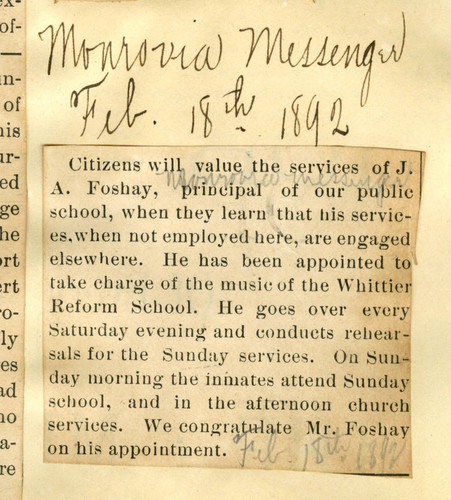 Monrovia Messenger
Feb. 18th. 1892
Citizens will value the services of J.
A. Foshay, principal of our public
school, when they learn that his servic-
es, when not employed here, are engaged
elsewhere. He has been appointed to
take charge of the music of the Whittier
Reform School. He goes over every
Saturday evening and conducts rehear-
sals for the Sunday services. On Sun-
day morning the inmates attend Sunday
school, and in the afternoon church
services. We congratulate Mr. Foshay
on his appointment.
Monrovia Messenger
Feb. 18th 1892